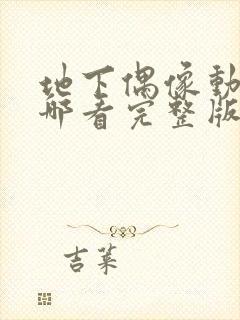 地下偶像動
哪看完整版
吉萊